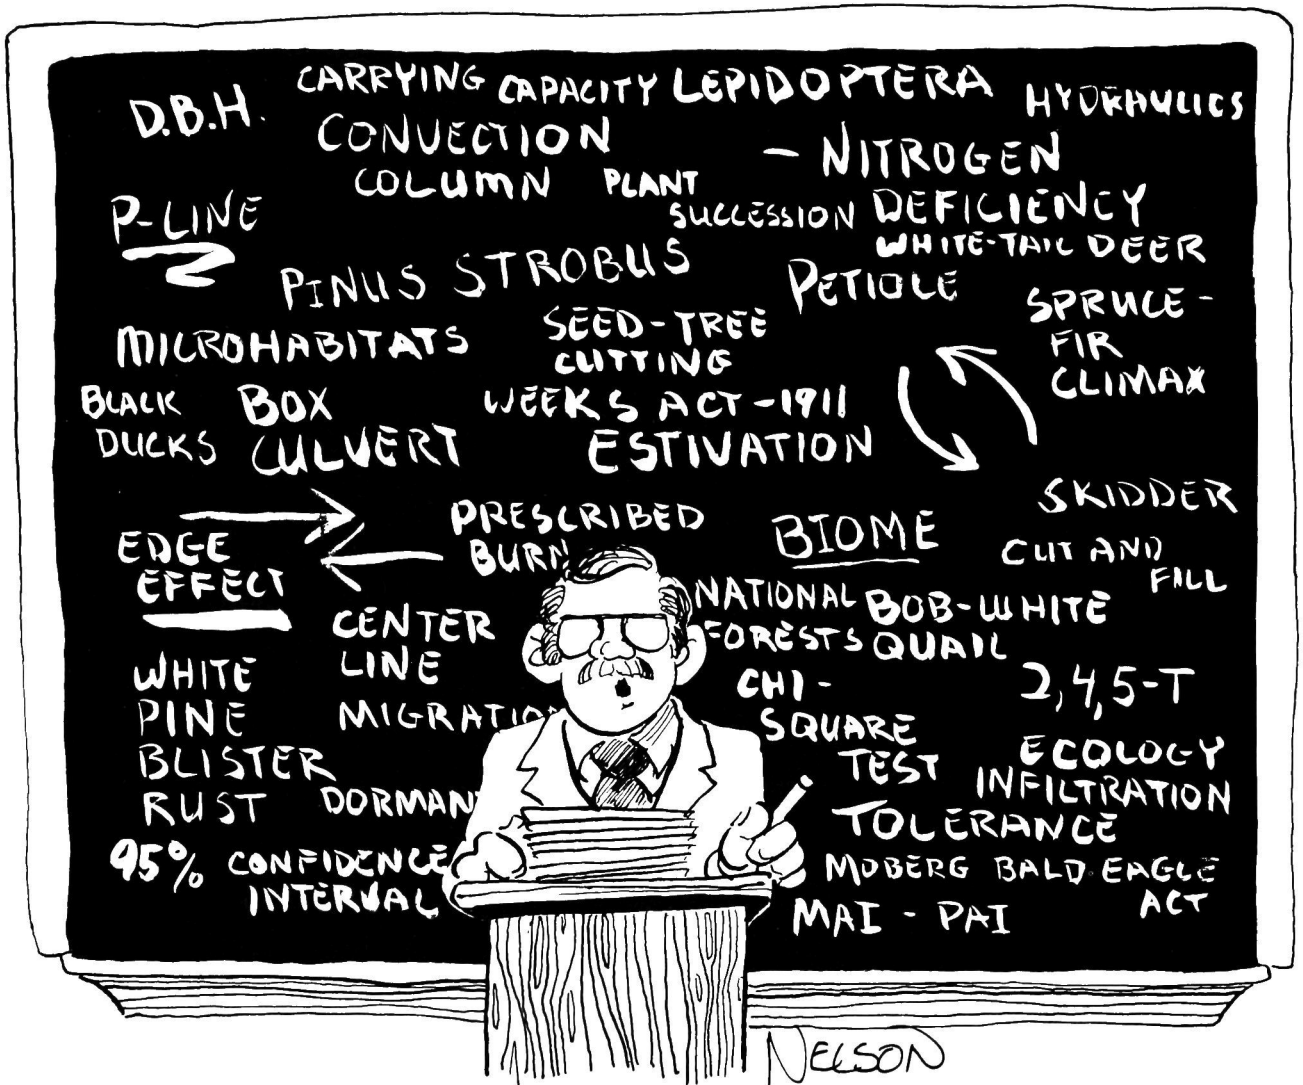 D.B.H.
CARRYING CAPACITY
LEPIDOPTERA
HYDRAULICS
CONVECTION
COLUMN
- NITROGEN
DEFICIENCY
PLANT
SUCCESSION
WHITE-TAIL DEER
P-LINE
PINUS STROBUS
PETIOLE
SPRUCE-
FIR
CLIMAX
MICROHABITATS
SEED-TREE
CUTTING
BLACK
DUCKS
BOX
CULVERT
WEEKS ACT-1911
ESTIVATION
SKIDDER
EDGE
EFFECT
PRESCRIBED
BURN
BIOME
CUT AND
FILL
CENTER
LINE
NATIONAL
FORESTS
BOB-WHITE
QUAIL
WHITE
PINE
BLISTER
RUST
MIGRATIO
CHI-
SQUARE
TEST
2,4,5-T
ECOLOGY
INFILTRATION
DORMAN
TOLERANCE
95% CONFIDENCE
INTERVAL
MOBERG BALD EAGLE
ACT
MAI - PAI
NELSON